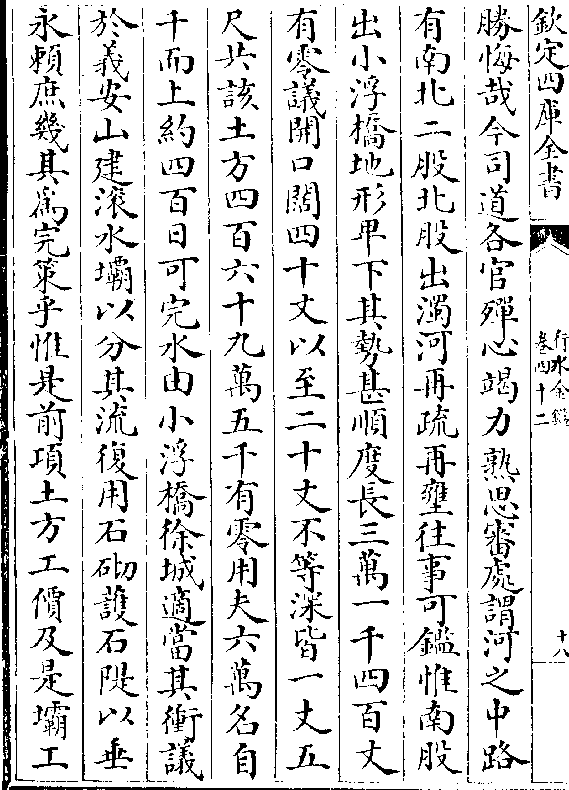 欽定四庫全書
行水金鑑
卷四十二
十八
勝悔哉今司道各官殫心竭力熟思審處謂河之中路
有南北二股北股出濁河再疏再壅往事可鑑惟南股
出小浮橋地形卑下其勢甚順度長三萬一千四百丈
有零議開口闊四十丈以至二十丈不等深皆一丈五
尺共該土方四百六十九萬五千有零用夫六萬名自
千而上約四百日可完水由小浮橋徐城適當其衝議
於義安山建滚水壩以分其流復用石砌護石隄以垂
永頼庶幾其為完策乎惟是前項土方工價及是壩工